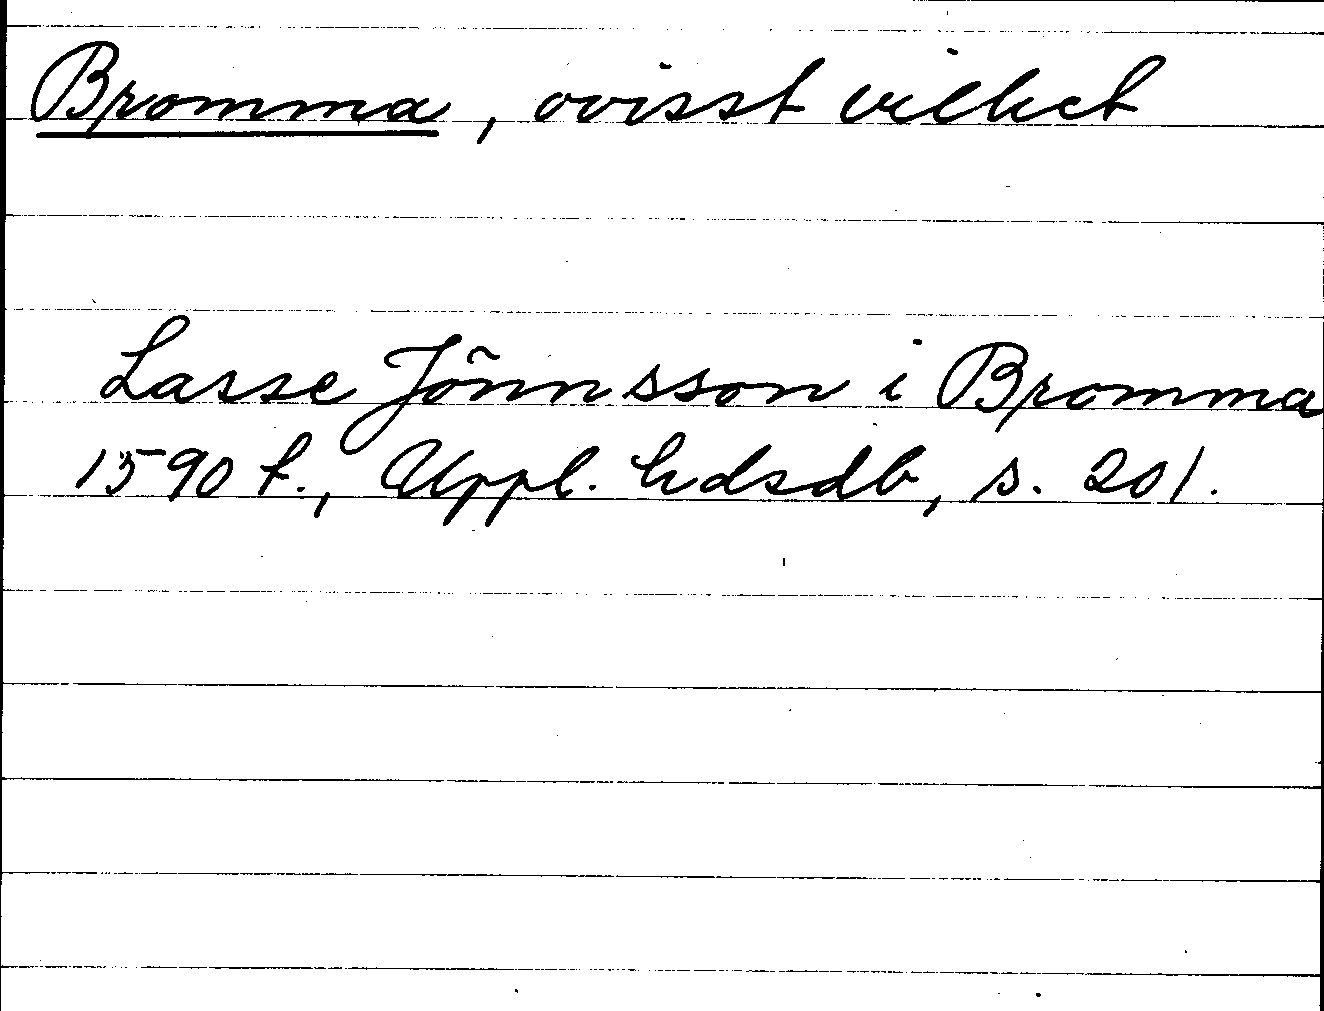 Bromma, ovisst vilket
Lasse Jönnsson i Bromma
1590 t., Uppl. lidsdb, s. 201.